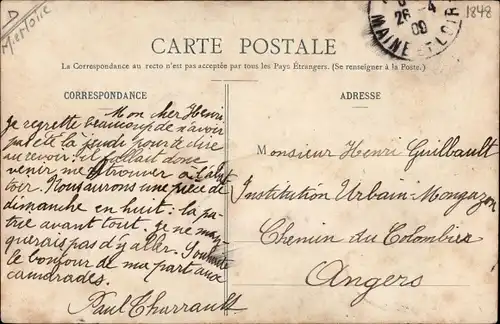 D
1848
26-4
09
MAINE-ET-LOIRE
CARTE POSTALE
La Correspondance au recto n'est pas acceptée par tous les Pays Étrangers. (Se renseigner à la Poste.)
CORRESPONDANCE
ADRESSE
Mon cher Henri
Je regrette beaucoup de n'avoir
pas été là jeudi pour te dire
au revoir: il fallait donc
venir me trouver
Nous aurons une pièce de
dimanche en huit: la pa-
trie avant tout. Je ne man-
querais pas d'y aller. Souhaite
le bonjour de ma part aux
camarades.
Paul Charrault
Monsieur Henri Guilbault
Institution Urbain-Mongazon
Chemin du Colombier
Angers